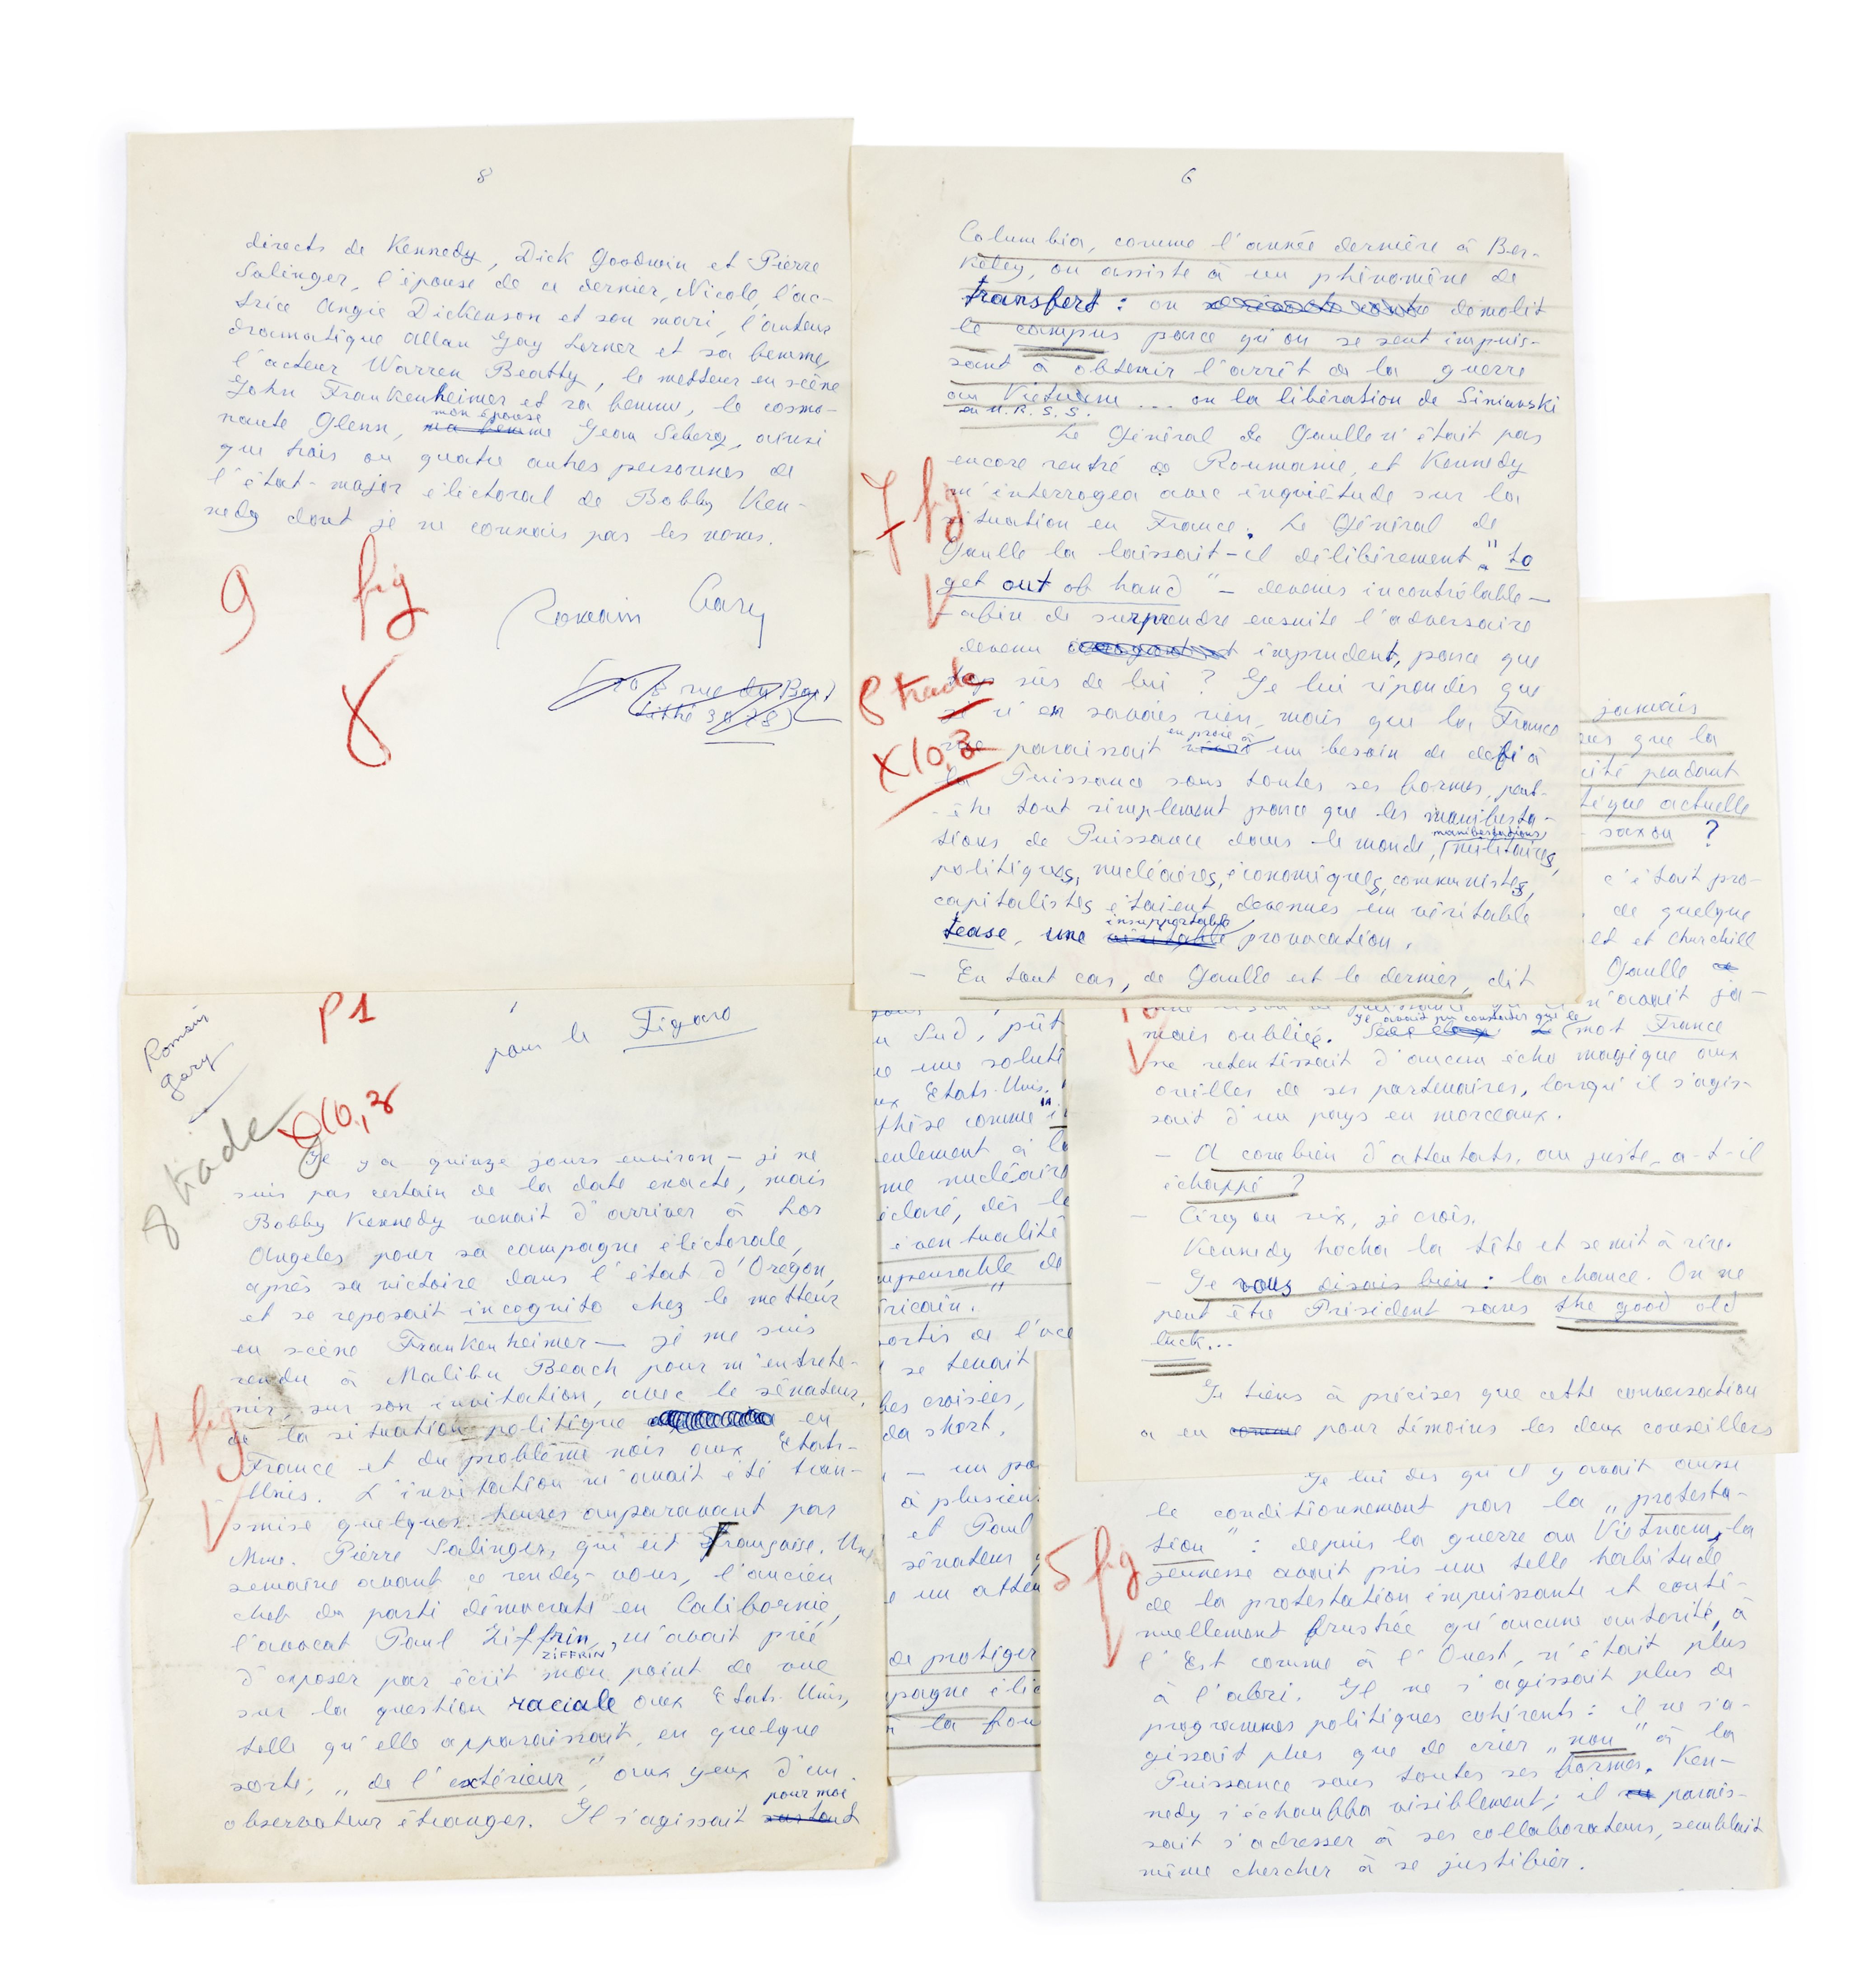 8
directs de Kennedy, Dick Goodwin et Pierre
Salinger, l'épouse de ce dernier, Nicole, l'ac-
trice Angie Dickenson et son mari, l'auteur
dramatique Allan Gay Lerner et sa femme,
l'acteur Warren Beatty, le metteur en scène
John Frankenheimer et sa femme, le cosmo-
mon épouse
naute Glenn, ma femme Jean Seberg, ainsi
que trois ou quatre autres personnes de
l'état-major électoral de Bobby Ken-
nedy dont je ne connais pas les noms.
9 fig
8
Romain Gary
108 rue du Bac
Littré 3028
6
Columbia, comme l'année dernière à Ber-
keley, on assiste à un phénomène de
transfert : on démolit
le campus parce qu'on se sent impuis-
sant à obtenir l'arrêt de la guerre
au Vietnam... ou la libération de Siniavski
en U.R.S.S.
Le Général de Gaulle n'était pas
encore rentré de Roumanie, et Kennedy
m'interrogea avec inquiétude sur la
situation en France. Le Général de
Gaulle la laissait-il délibérement "to
get out of hand" – devenir incontrôlable –
afin de surprendre ensuite l'adversaire
devenu imprudent, parce que
trop sûr de lui ? Je lui répondis que
je n'en savais rien, mais que la France
en proie à
me paraissait un besoin de défi à
la Puissance sous toutes ses formes, peut-
être tout simplement parce que les manifesta-
tions de Puissance dans le monde, militaires,
manifestations
politiques, nucléaires, économiques, communistes,
capitalistes étaient devenues un véritable
insupportable
tease, une véritable provocation.
– En tout cas, de Gaulle est le dernier, dit
7 fig
8 trade
X10,3
Romain
Gary
P1
1
pour le Figaro
8 trade
X10,3
Il y a quinze jours environ – je ne
suis pas certain de la date exacte, mais
Bobby Kennedy venait d'arriver à Los
Angeles pour sa campagne électorale,
après sa victoire dans l'état d'Orégon,
et se reposait incognito chez le metteur
en scène Frankenheimer – je me suis
rendu à Malibu Beach pour m'entrete-
nir, sur son invitation, avec le sénateur,
de la situation politique en
France et du problème noir aux Etats-
Unis. L'invitation m'avait été tran-
smise quelques heures auparavant par
Mme. Pierre Salinger, qui est Française. Une
semaine avant ce rendez-vous, l'ancien
chef du parti démocrate en Californie,
l'avocat Paul Ziffrin, m'avait prié
ZIFFRIN
d'exposer par écrit mon point de vue
sur la question raciale aux Etats-Unis,
telle qu'elle apparaissait, en quelque
sorte, "de l'extérieur", aux yeux d'un
pour moi
observateur étranger. Il s'agissait surtout
1 fig
u Sud, pût
une soluti
ux Etats-Unis.
thèse comme "i
eulement à la
me nucléaire
éclaré, dès le
éventualité
impensable de
ricain."
ortis de l'océ
se tenait
bes croisées,
da short.
– un pa
à plusieu
et Paul
sénateur
un atten
de protéger
pagne élec
à la fou
jamais
que la
cité pendant
tique actuelle
saxon ?
c'était pro-
de quelque
et Churchill
Gaulle
n'avait ja-
j'avais pu constater que le
mais oublié. mot France
ne retentissait d'aucun écho magique aux
oreilles de ses partenaires, lorsqu'il s'agis-
sait d'un pays en morceaux.
– A combien d'attentats, au juste, a-t-il
échappé ?
– Cinq ou six, je crois.
Kennedy hocha la tête et se mit à rire.
– Je vous disais bien : la chance. On ne
peut être Président sans the good old
luck...
Je tiens à préciser que cette conversation
a eu comme pour témoins les deux conseillers
Je lui dis qu'il y avait aussi
le conditionnement par la "protesta-
tion" : depuis la guerre au Vietnam, la
jeunesse avait pris une telle habitude
de la protestation impuissante et conti-
nuellement frustrée qu'aucune autorité, à
l'Est comme à l'Ouest, n'était plus
à l'abri. Il ne s'agissait plus de
programmes politiques cohérents : il ne s'a-
gissait plus que de crier "non" à la
Puissance sous toutes ses formes. Ken-
nedy s'échauffa visiblement ; il parais-
sait s'adresser à ses collaborateurs, semblait
même chercher à se justifier.
5 fig